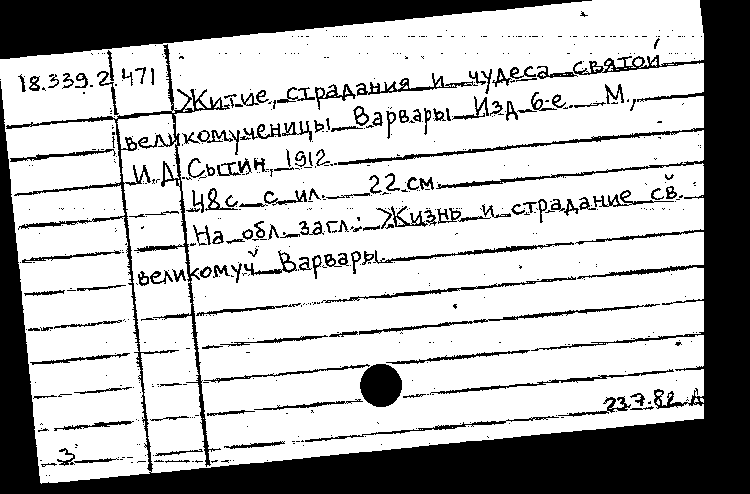 18.339.2.471
Житие, страдания и чудеса святой
великомученицы Варвары Изд 6-е М.,
И.Д. Сытин, 1912
48с. с ил. 22 см.
На обл. загл.: Жизнь и страдание св.
великомуч Варвары.
23.7.82 А
3